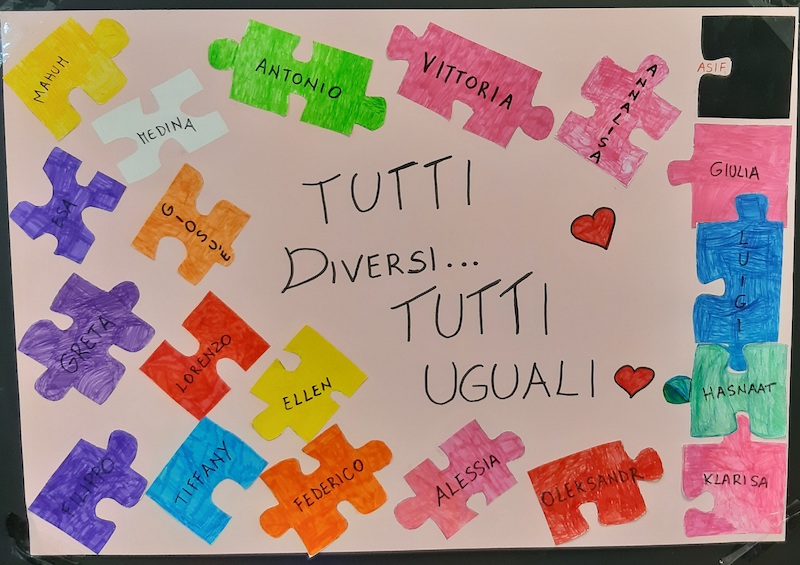 MAHUM
MEDINA
ANTONIO
VITTORIA
ANNALISA
ASIF
GIULIA
ESA
GIOSUÈ
TUTTI
DIVERSI...
TUTTI
UGUALI
LUIGI
GRETA
LORENZO
ELLEN
HASNAAT
FILIPPO
TIFFANY
FEDERICO
ALESSIA
OLEKSANDR
KLARISA